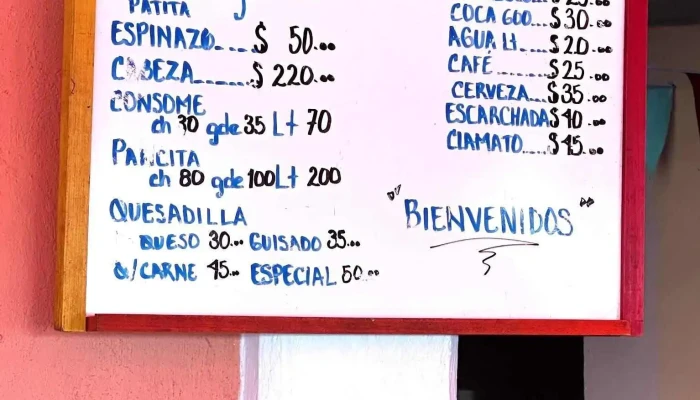 PATITA
ESPINAZO....$ 50.00
CABEZA.......$ 220.00
CONSOME
ch 30 gde 35 Lt 70
PANCITA
ch 80 gde 100 Lt 200
QUESADILLA
QUESO 30.00 GUISADO 35.00
C/CARNE 45.00 ESPECIAL 50.00
COCA 600...$30.00
AGUA Lt....$20.00
CAFÉ.......$25.00
CERVEZA...$35.00
ESCARCHADA $40.00
CLAMATO.....$45.00
"BIENVENIDOS"